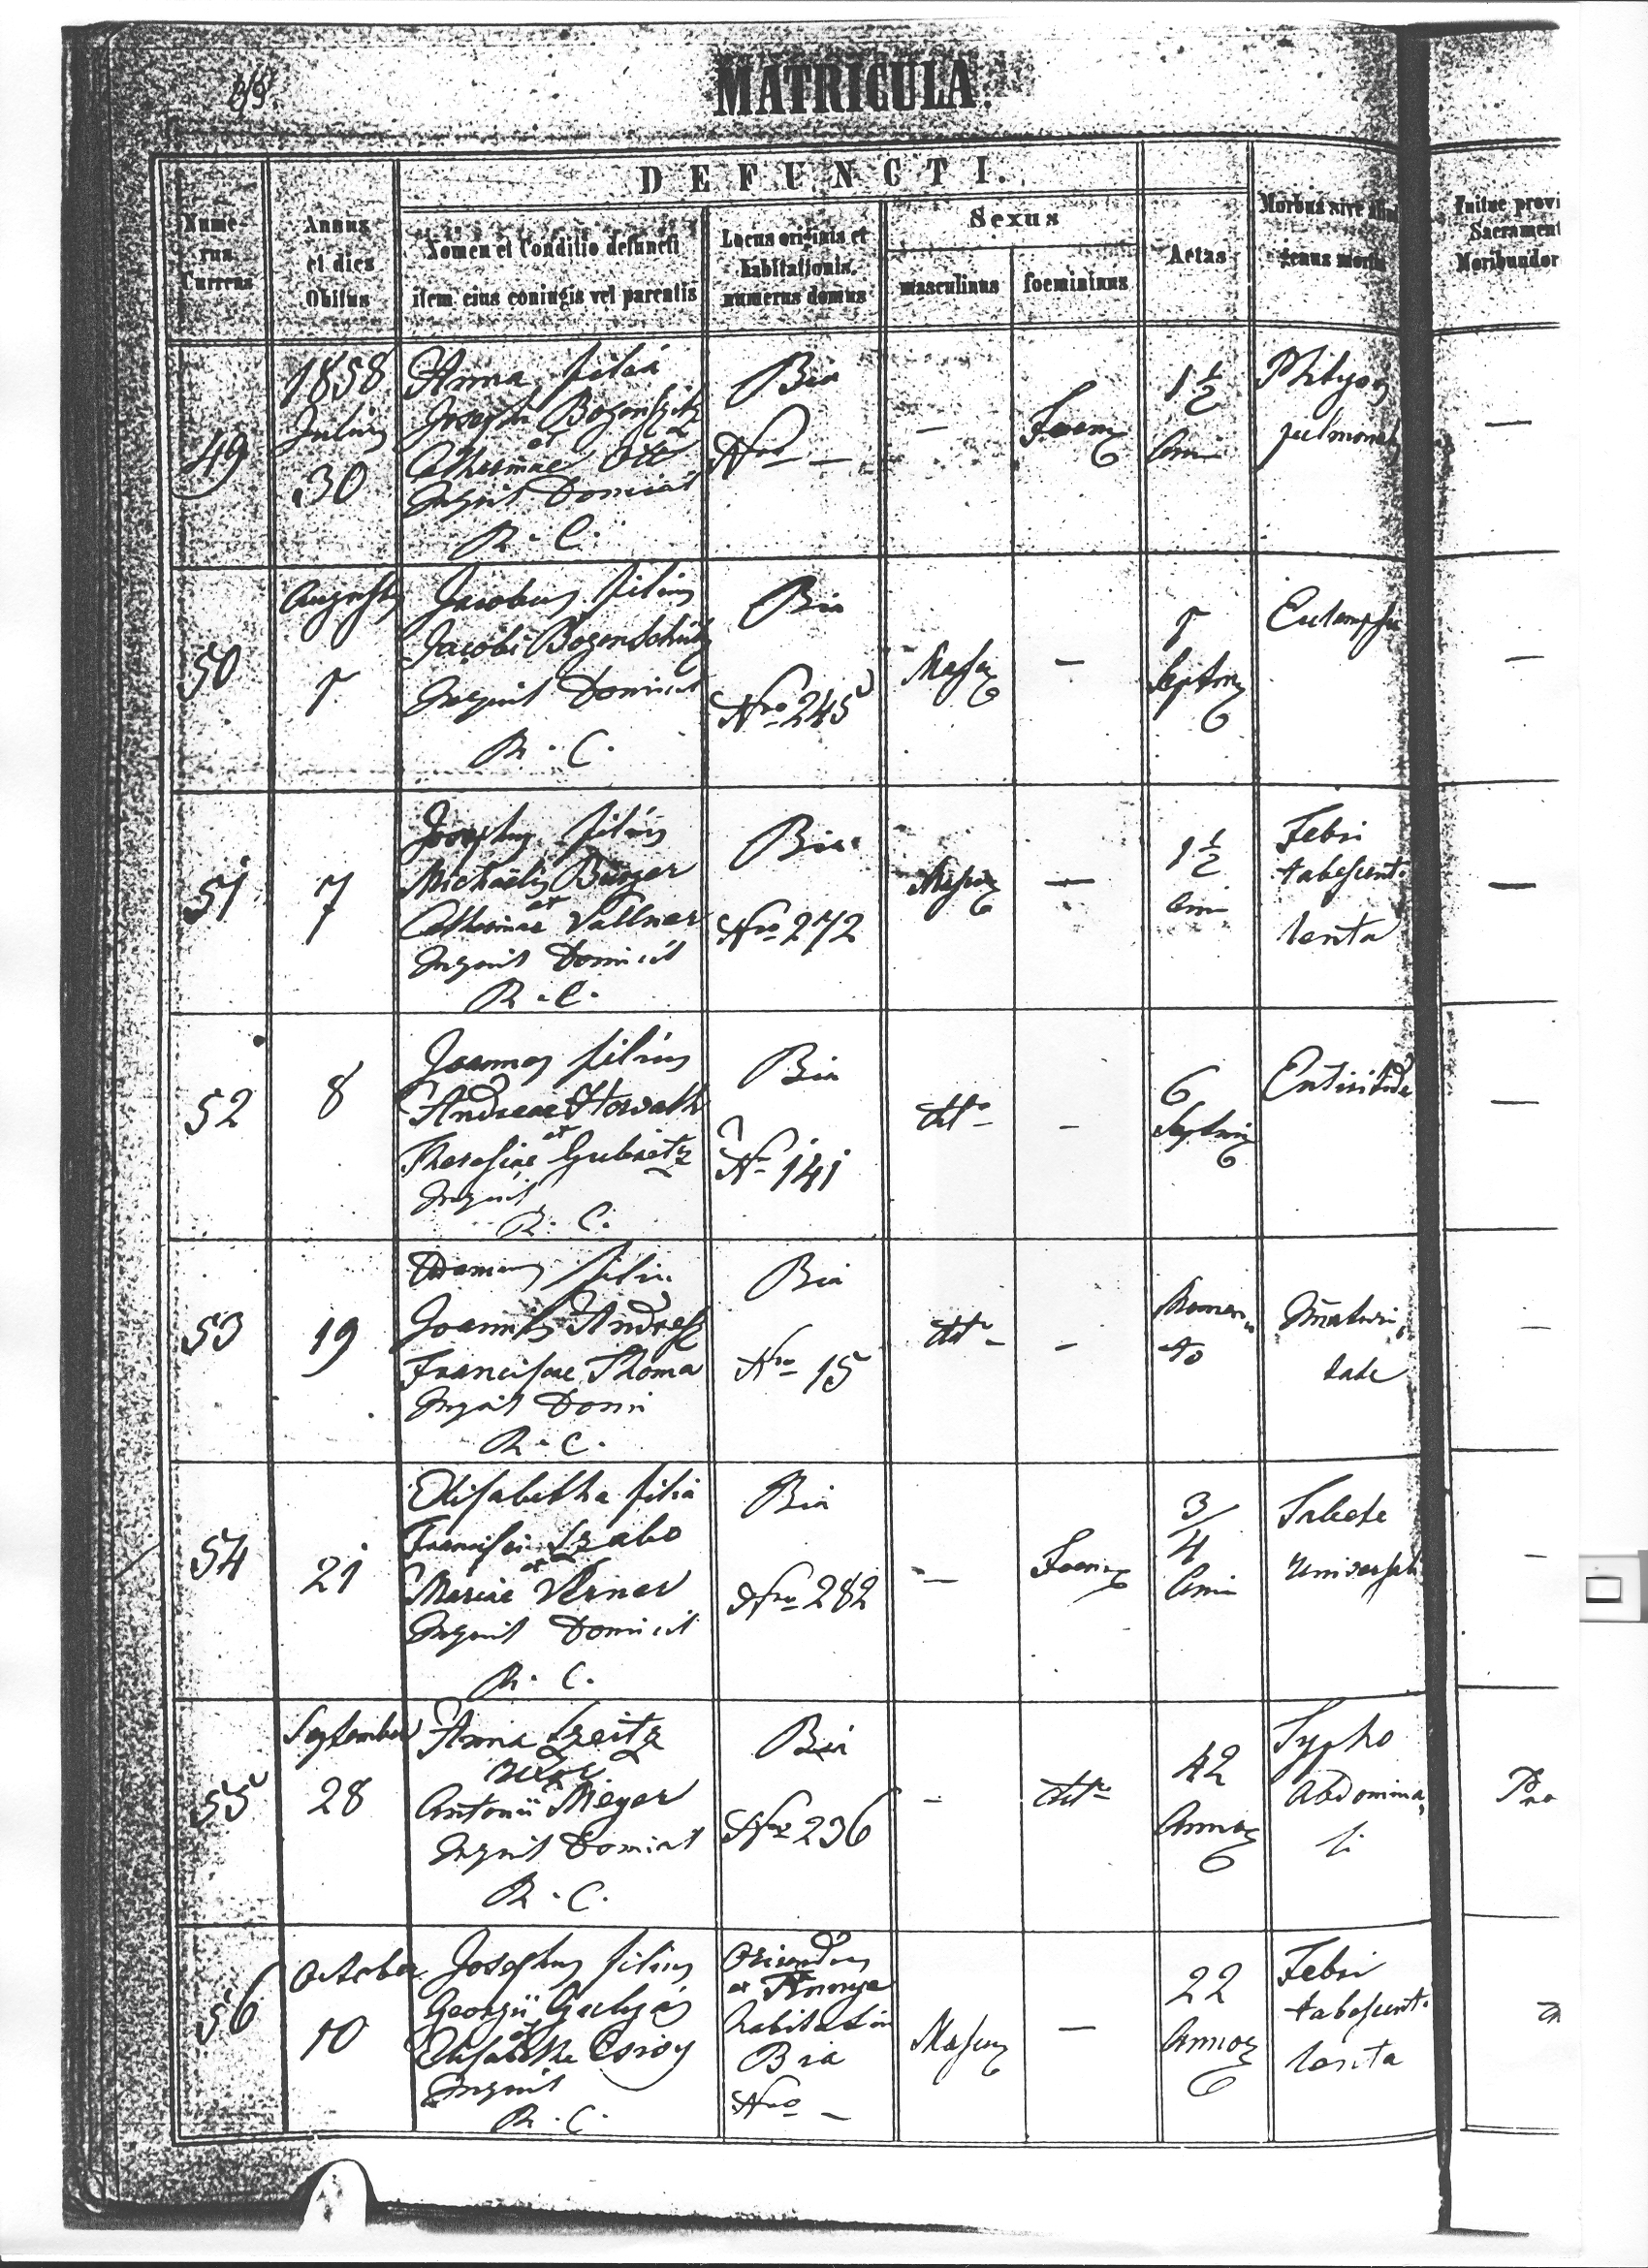 MATRICULA.
DEFUNCTI.
Nume-
rus
Currens
Annus
et dies
Obitus
Nomen et Conditio defuncti
item eius coniugis vel parentis
Locus originis et
habitationis,
numerus domus
Sexus
masculinus
foemininus
Aetas
Morbus sive aliud
genus mortis
Sacrament
49
1858
Julius
30
Anna filia
Josephi
et
Catharinae Ott
Inquil Domicil
R. C.
Bia
Nro —
—
Foem
1 1/2
Ani
—
50
Augustus
Jacobus filius
Jacobi Bogenschütz
Inquil Domicil
R. C.
Bia
Nro 245
Masc
—
—
51
7
Josephus filius
Michaelis Burger
et
Catharinae Vallner
Inquil Domicil
R. C.
Bia
Nro 272
Masc
—
1 1/2
Ani
Febri
tabescent
lenta
—
52
8
Joannes filius
Andreae Horvath
et
Theresiae
Inquil
R. C.
Bia
Nr 141
dtto
—
6
Septim
—
53
19
filiu
Joannis
Franciscae Thoma
Inquil Domi
R. C.
Bia
Nro 15
dtto
—
Momen
to
Imaturi
tate
—
54
21
Elisabetha filia
Francisci Szabo
et
Mariae Verner
Inquil Domicil
R. C.
Bia
Nro 282
—
Foem
3/4
Ani
Tabede
universali
—
55
September
28
Anna Szeitz
uxor
Antonii Meyer
Inquil Domicil
R. C.
Bia
Nro 236
—
dtto
42
Annor
Typho
abdomina
li
56
October
10
Josephus filius
Georgii Gulyás
et
Elisabethae
Inquil
R. C.
Oriundus
habitatio
Bia
Nro —
Masc
—
22
Annor
Febri
tabescent
lenta